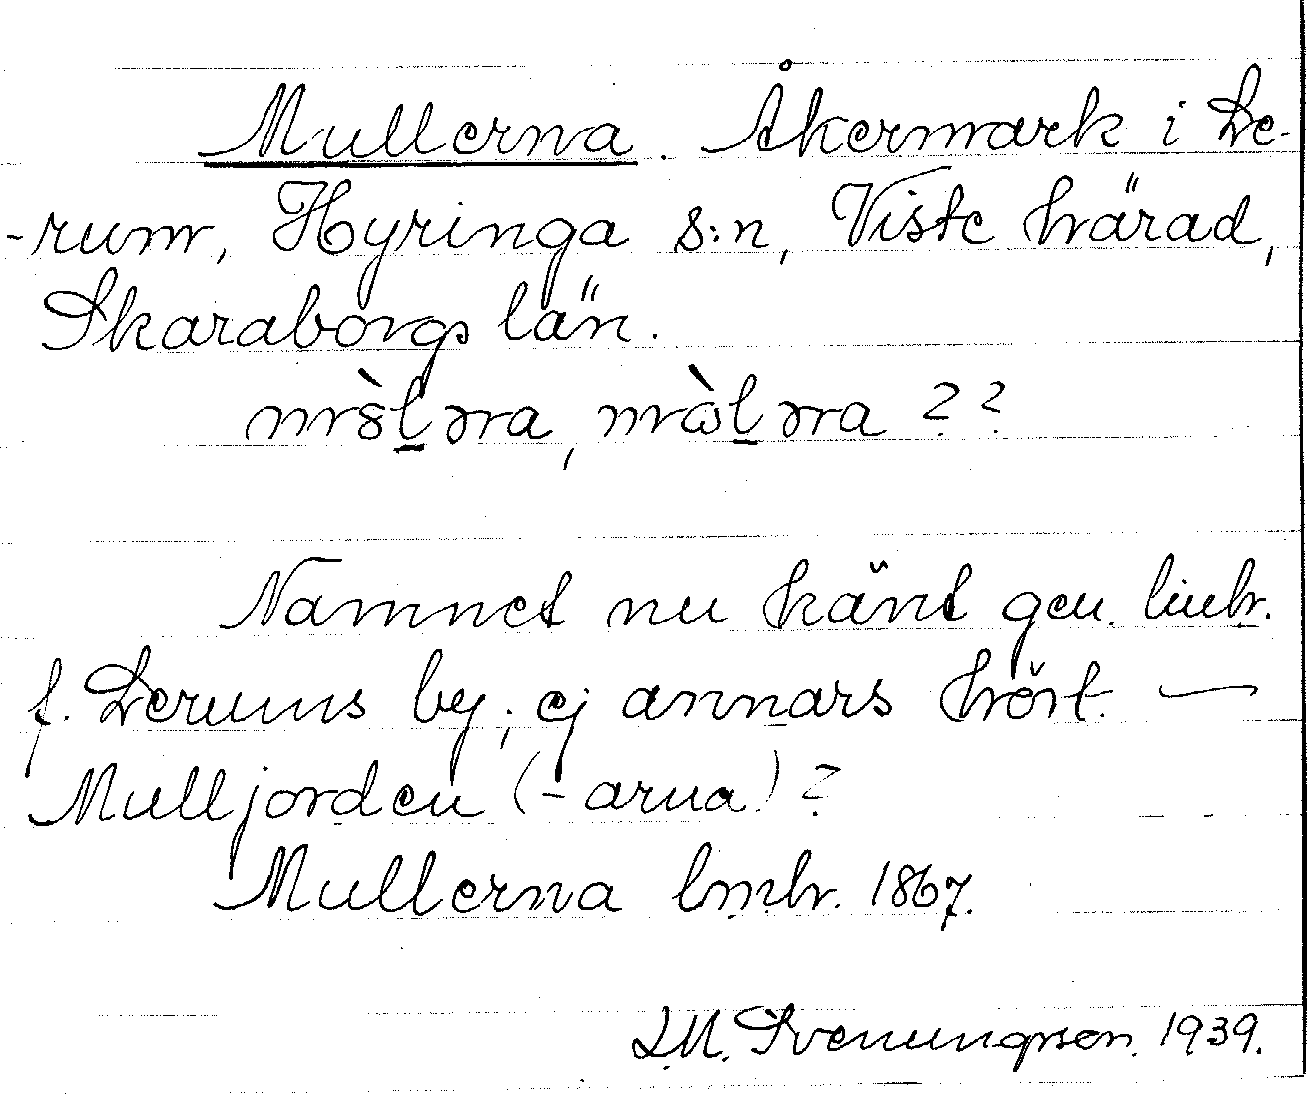 Mullerna. Åkermark i Le-
-rum, Hyringa s:n, Viste härad,
Skaraborgs län.
??
Namnet nu känt gm.
f. Lerums by; ej annars hört. —
Mulljorden (-arna)?
Mullerna lmhr. 1867.
L.M. Svenungsson. 1939.